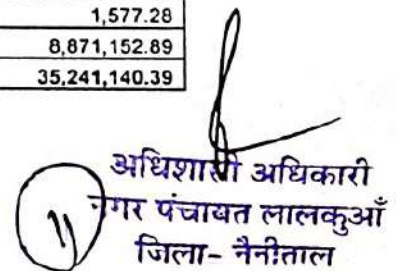 1,577.28
8,871,152.89
35,241,140.39
अधिशासी अधिकारी
नगर पंचायत लालकुआँ
जिला- नैनीताल